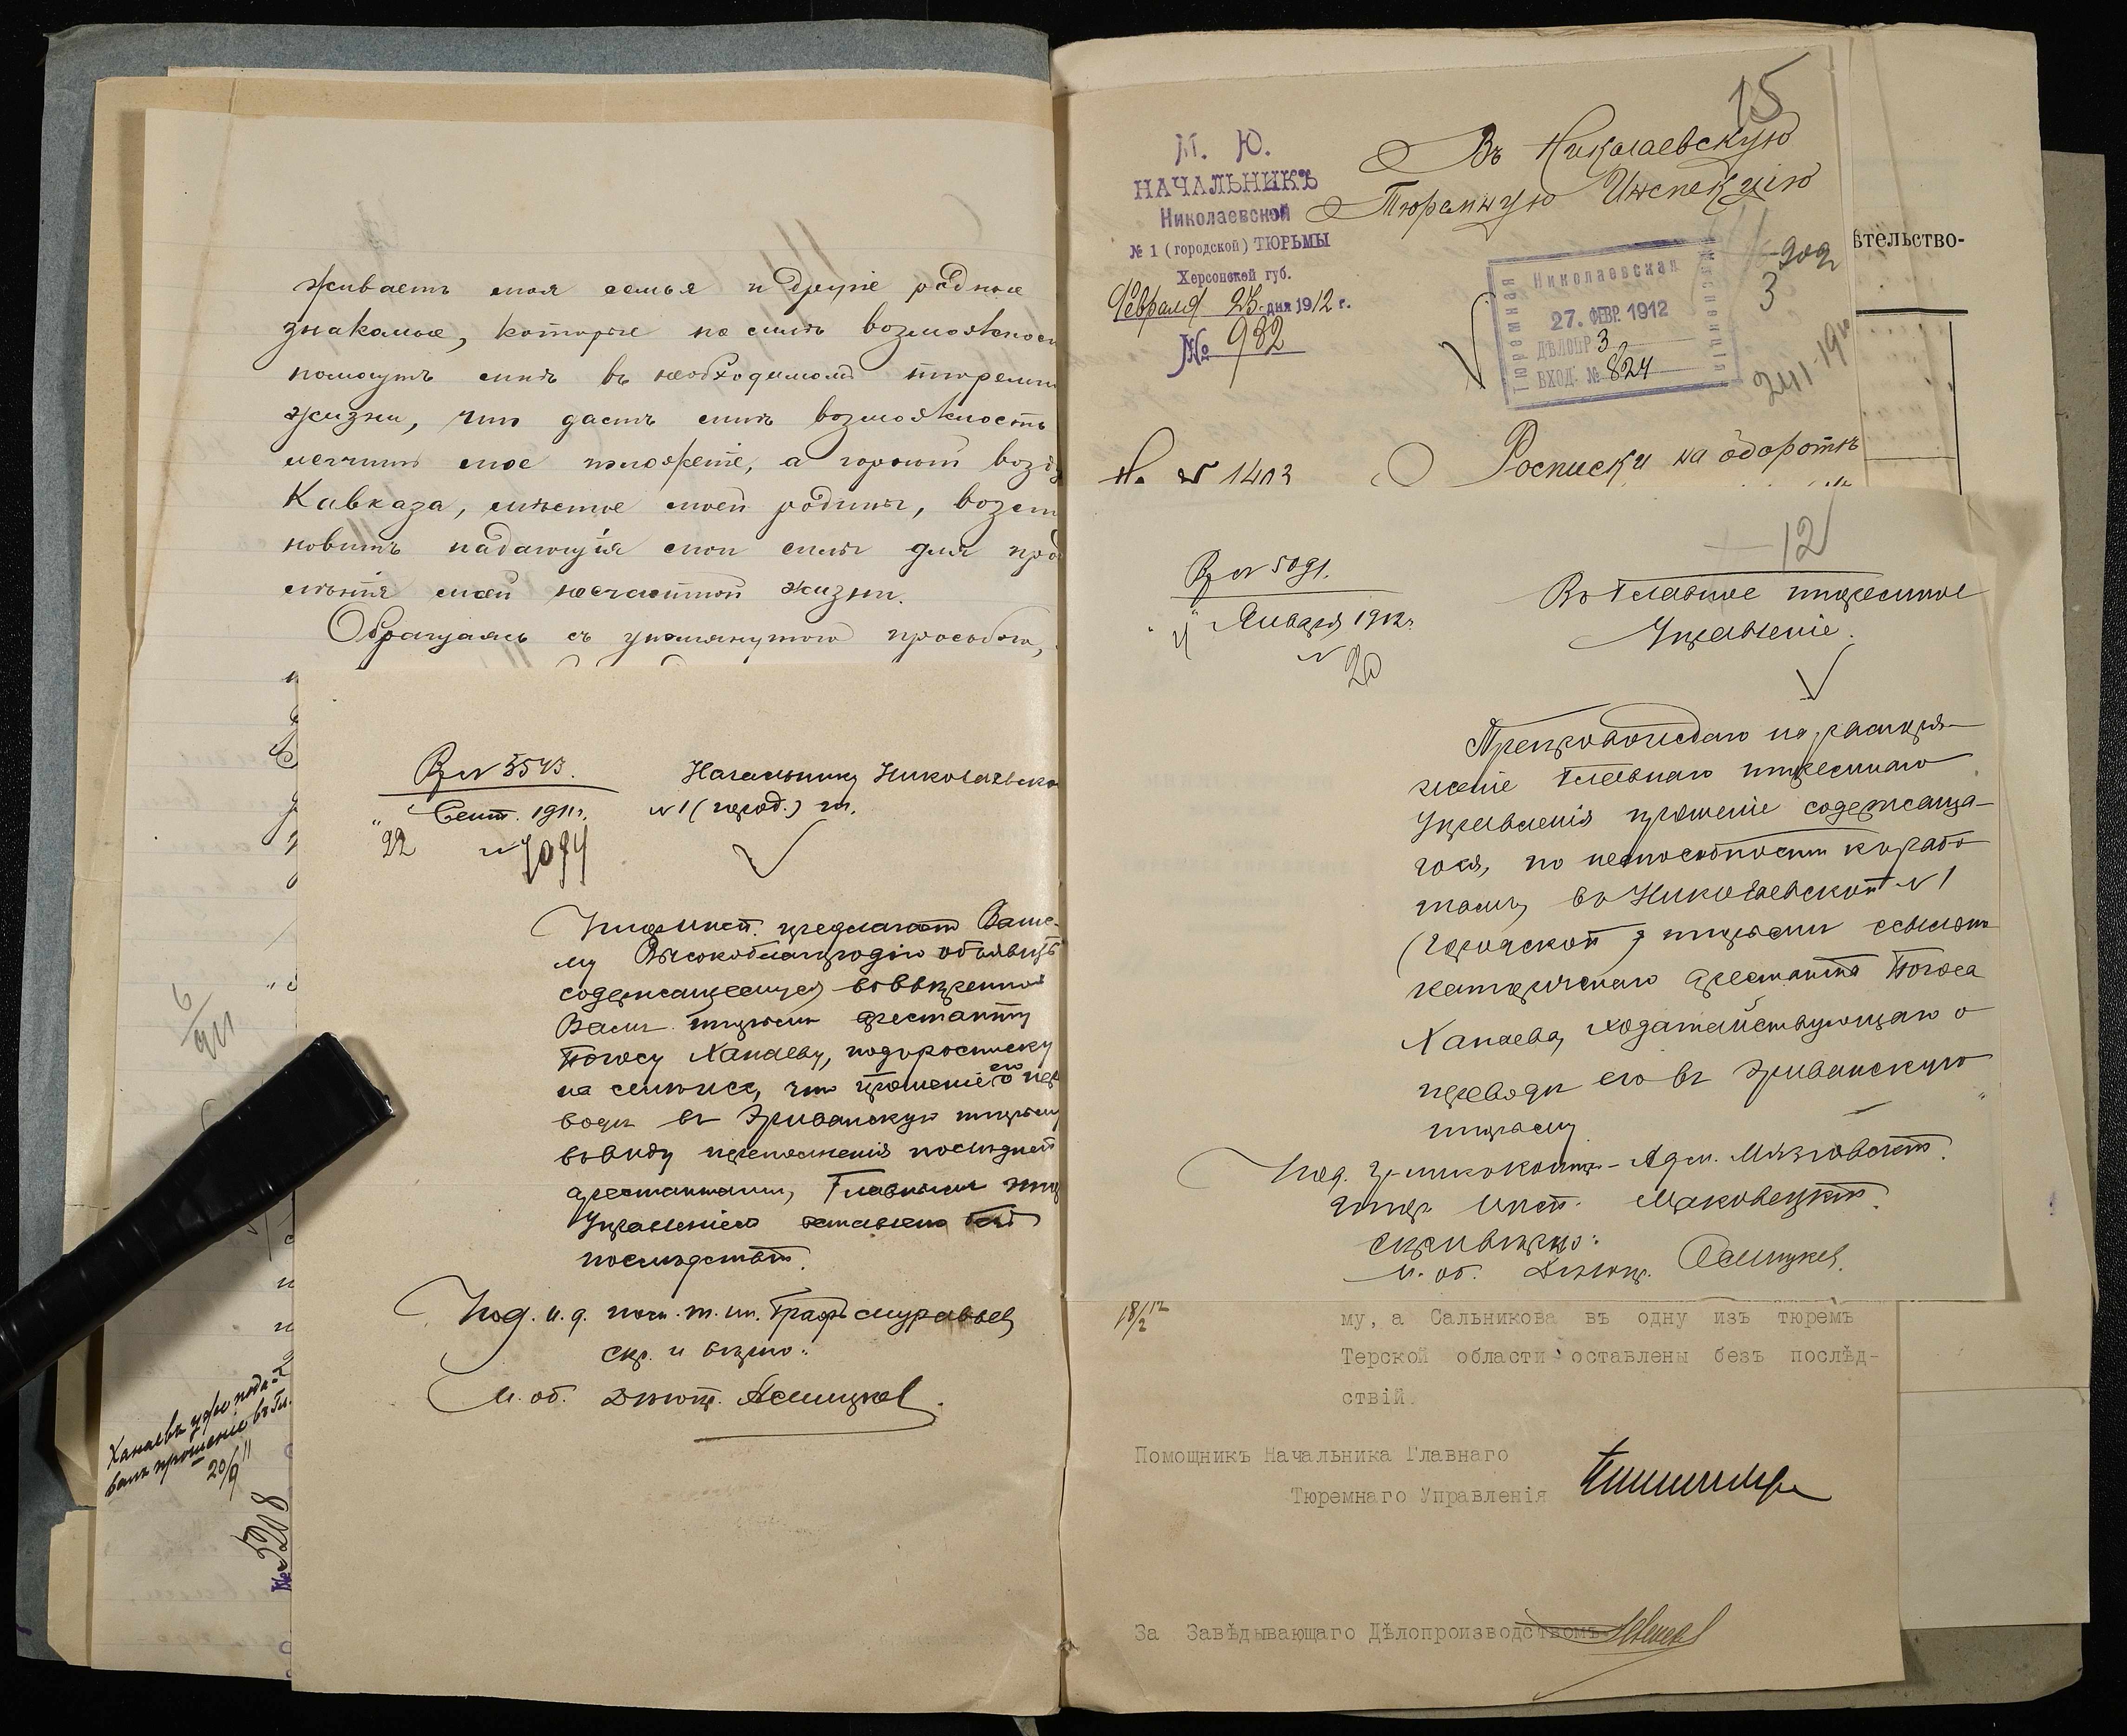 живаетъ моя семья и другіе родные
знакомые, которые по мѣрѣ
помогутъ мнѣ въ необходимомъ
жизни, что дастъ мнѣ возможность
мое положеніе, а горный
Кавказа, моей родины,
новить падающія мои силы для
моей несчастной жизни.
Обращаясь съ упомянутою просьбою,
Вх № 3543.
Сент. 1911 г.
22 № 7094
Начальнику Николаевско
№ 1 (город.) т.
Тюр. Инсп. предлагаетъ Ваше-
му Высокоблагородію объявить
содержащемуся во ввѣренной
Вамъ тюрьмѣ арестанту
Погосу Ханаеву, подъ росписку
на семъ же, что прошеніе его о пере
водѣ въ Эриванскую тюрьму
ввиду переполненія послѣдней
арестантами, Главнымъ тюр
Управленіемъ оставлено безъ
послѣдствій.
Под. и. д. пом. т. ин. Графъ Муравьев
Скр. и вѣрно:
И. об. Дѣлопр.
6/911
Ханаевъ уже пода-
валъ прошеніе въ Гл.
20/9 11
№ 5208
15
М. Ю.
НАЧАЛЬНИКЪ
Николаевской
№ 1 (городской) ТЮРЬМЫ
Херсонской губ.
Февраля 23 дня 1912 г.
№ 932
Въ Николаевскую
Тюремную Инспекцію
Николаевская
Тюремная
Инспекція
27. ФЕВР. 1912
ДѢЛОПР. 3
ВХОД. № 824
3
№ 1403
Росписки на оборотѣ
ѣтельство-
12
Вх № 5091.
4 Января 1912 г.
№ 20
Въ Главное тюремное
Управленіе.
Препровождаю на распоря-
женіе Главнаго тюремнаго
Управленія прошеніе содержаща-
гося, по неспособности къ рабо
тамъ, въ Николаевской № 1
(городской) тюрьмѣ ссыльно
каторжнаго арестанта Погоса
Ханаева, ходатайствующаго о
переводѣ его въ Эриванскую
тюрьму.
Под. Адм. Мязговскій.
Тюр. Инсп. Маковецкій.
Скр. и вѣрно:
И. об. Дѣлопр.
18/2 12
му, а Сальникова въ одну изъ тюремъ
Терской области оставлены безъ послѣд-
ствій.
Помощникъ Начальника Главнаго
Тюремнаго Управленія
За Завѣдывающаго Дѣлопроизводствомъ